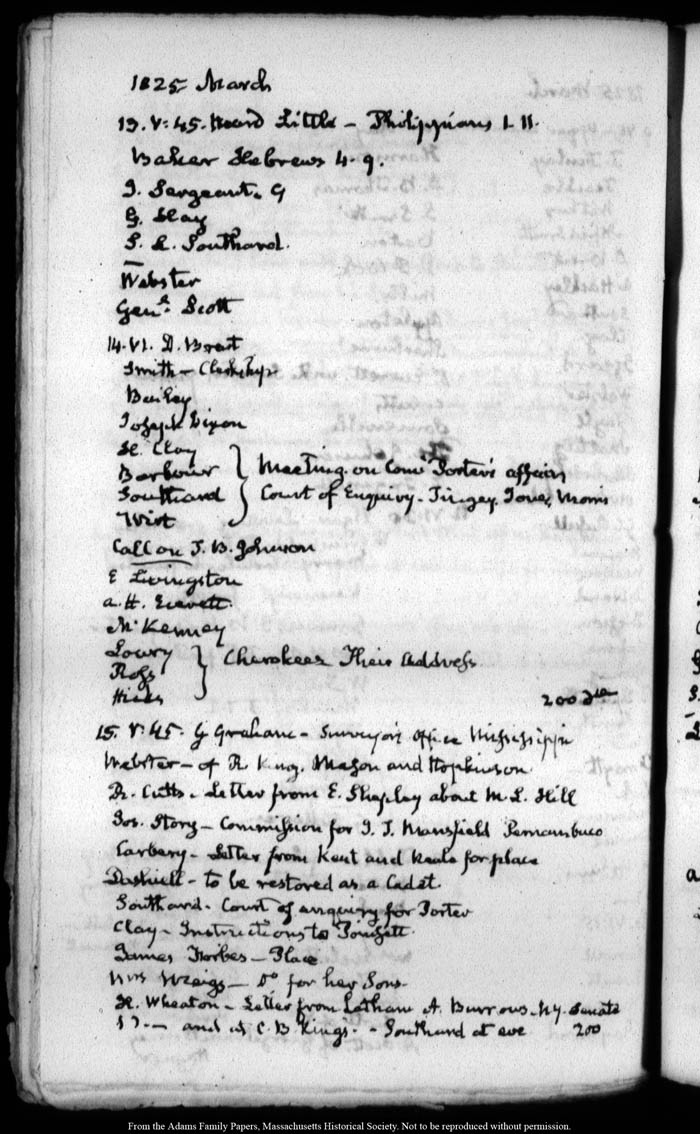 1825 March
13. V:45. Heard Little – Philippians 1. 11.
Baker Hebrews 4. 9.
J. Sergeant. G
H. Clay
S. L. Southard.
Webster
Genl. Scott
14. VI. D. Brent
Smith –
Bailey
Joseph Dixon
H. Clay
Barbour } Meeting. on Comr. Porter's affairs
Southard } Court of Enquiry. Tingey, Jones, Morris
Wirt
Call on J. B. Johnson
E Livingston
A. H. Everett.
McKenney
Lowry
Ross } Cherokees Their Address
Hicks
200
15. V:45. G Graham – Surveyor's office Mississippi
Webster – of R King, Mason and Hopkinson
R. Cutts. Letter from E. Shepley about M. L. Hill
Jos. Story – Commission for I. T. Mansfield Pernambuco
Carbery – Letter from Kent and Neale for place
Dashiell – to be restored as a Cadet.
Southard. Court of enquiry for Porter
Clay – Instructions to Poinsett.
James Forbes – Place
Mrs Meigs – Do for her Sons.
H. Wheaton – Letter from Latham A. Burrows. N.Y. Senate
and at C. B. King's. – Southard at eve 200
From the Adams Family Papers, Massachusetts Historical Society. Not to be reproduced without permission.